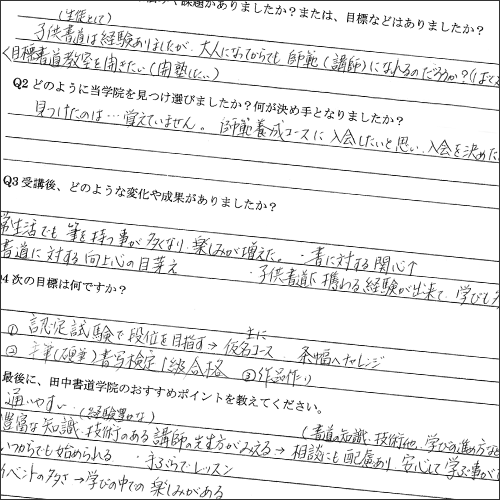 課題がありましたか？または、目標などはありましたか？
(生徒として)
子供書道は経験ありましたが、大人になってからでも 師範(講師)になれるのだろうか？
<目標書道教室を開きたい(開塾したい)
Q2 どのように当学院を見つけ選びましたか？何が決め手となりましたか？
見つけたのは…覚えていません。 師範養成コースに 入会したいと思い、入会を決めた
Q3 受講後、どのような変化や成果がありましたか？
常生活でも 筆を持つ事が多くなり、楽しみが増えた。 ・書に対する関心↑
書道に対する向上心の目芽え ・子供書道に携わる経験が出来て、学びも
4 次の目標は何ですか？
① 認定試験で段位を目指す→ 主に 仮名コース 条幅へチャレンジ
② 毛筆(硬筆)書写検定1級合格 ③作品作り
最後に、田中書道学院のおすすめポイントを教えてください。
通いやすい (経験豊かな) (書道の知識、技術他、学びの進め方など
豊富な知識、技術のある講師の先生方がみえる → 相談にも配慮あり、安心して学ぶ事が
いつからでも始められる ・手ぶらでレッスン
イベントの多さ→学びの中での楽しみがある